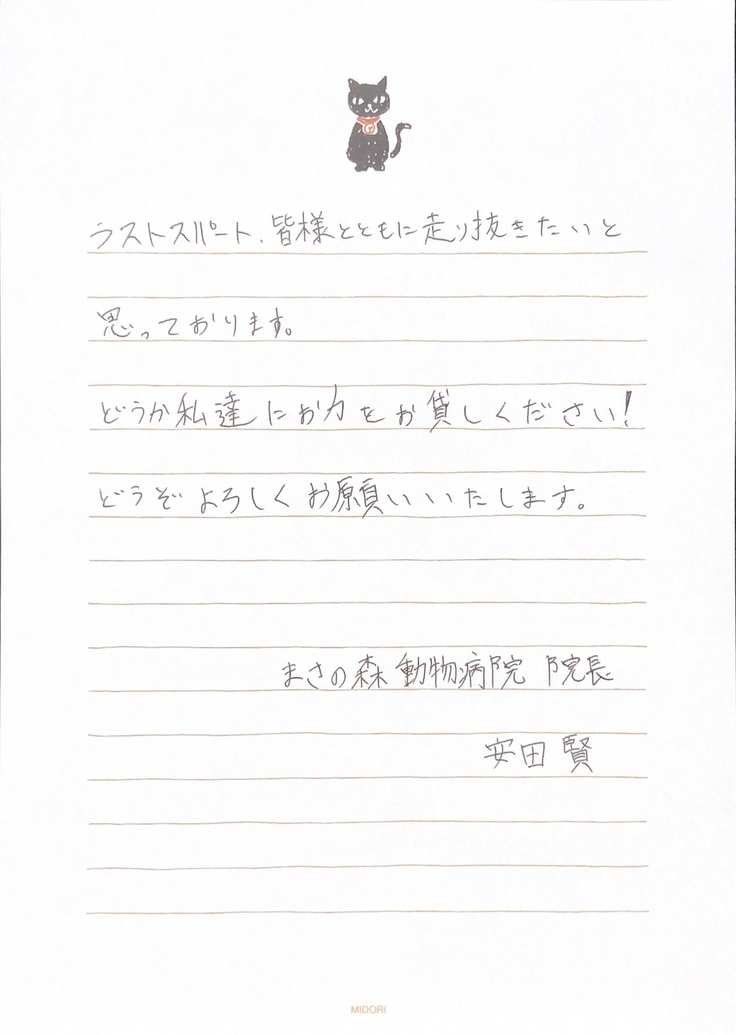 ラストスパート、皆様とともに走り抜きたいと
思っております。
どうか私達にお力をお貸しください!
どうぞよろしくお願いいたします。
まさの森動物病院 院長
安田賢
MIDORI